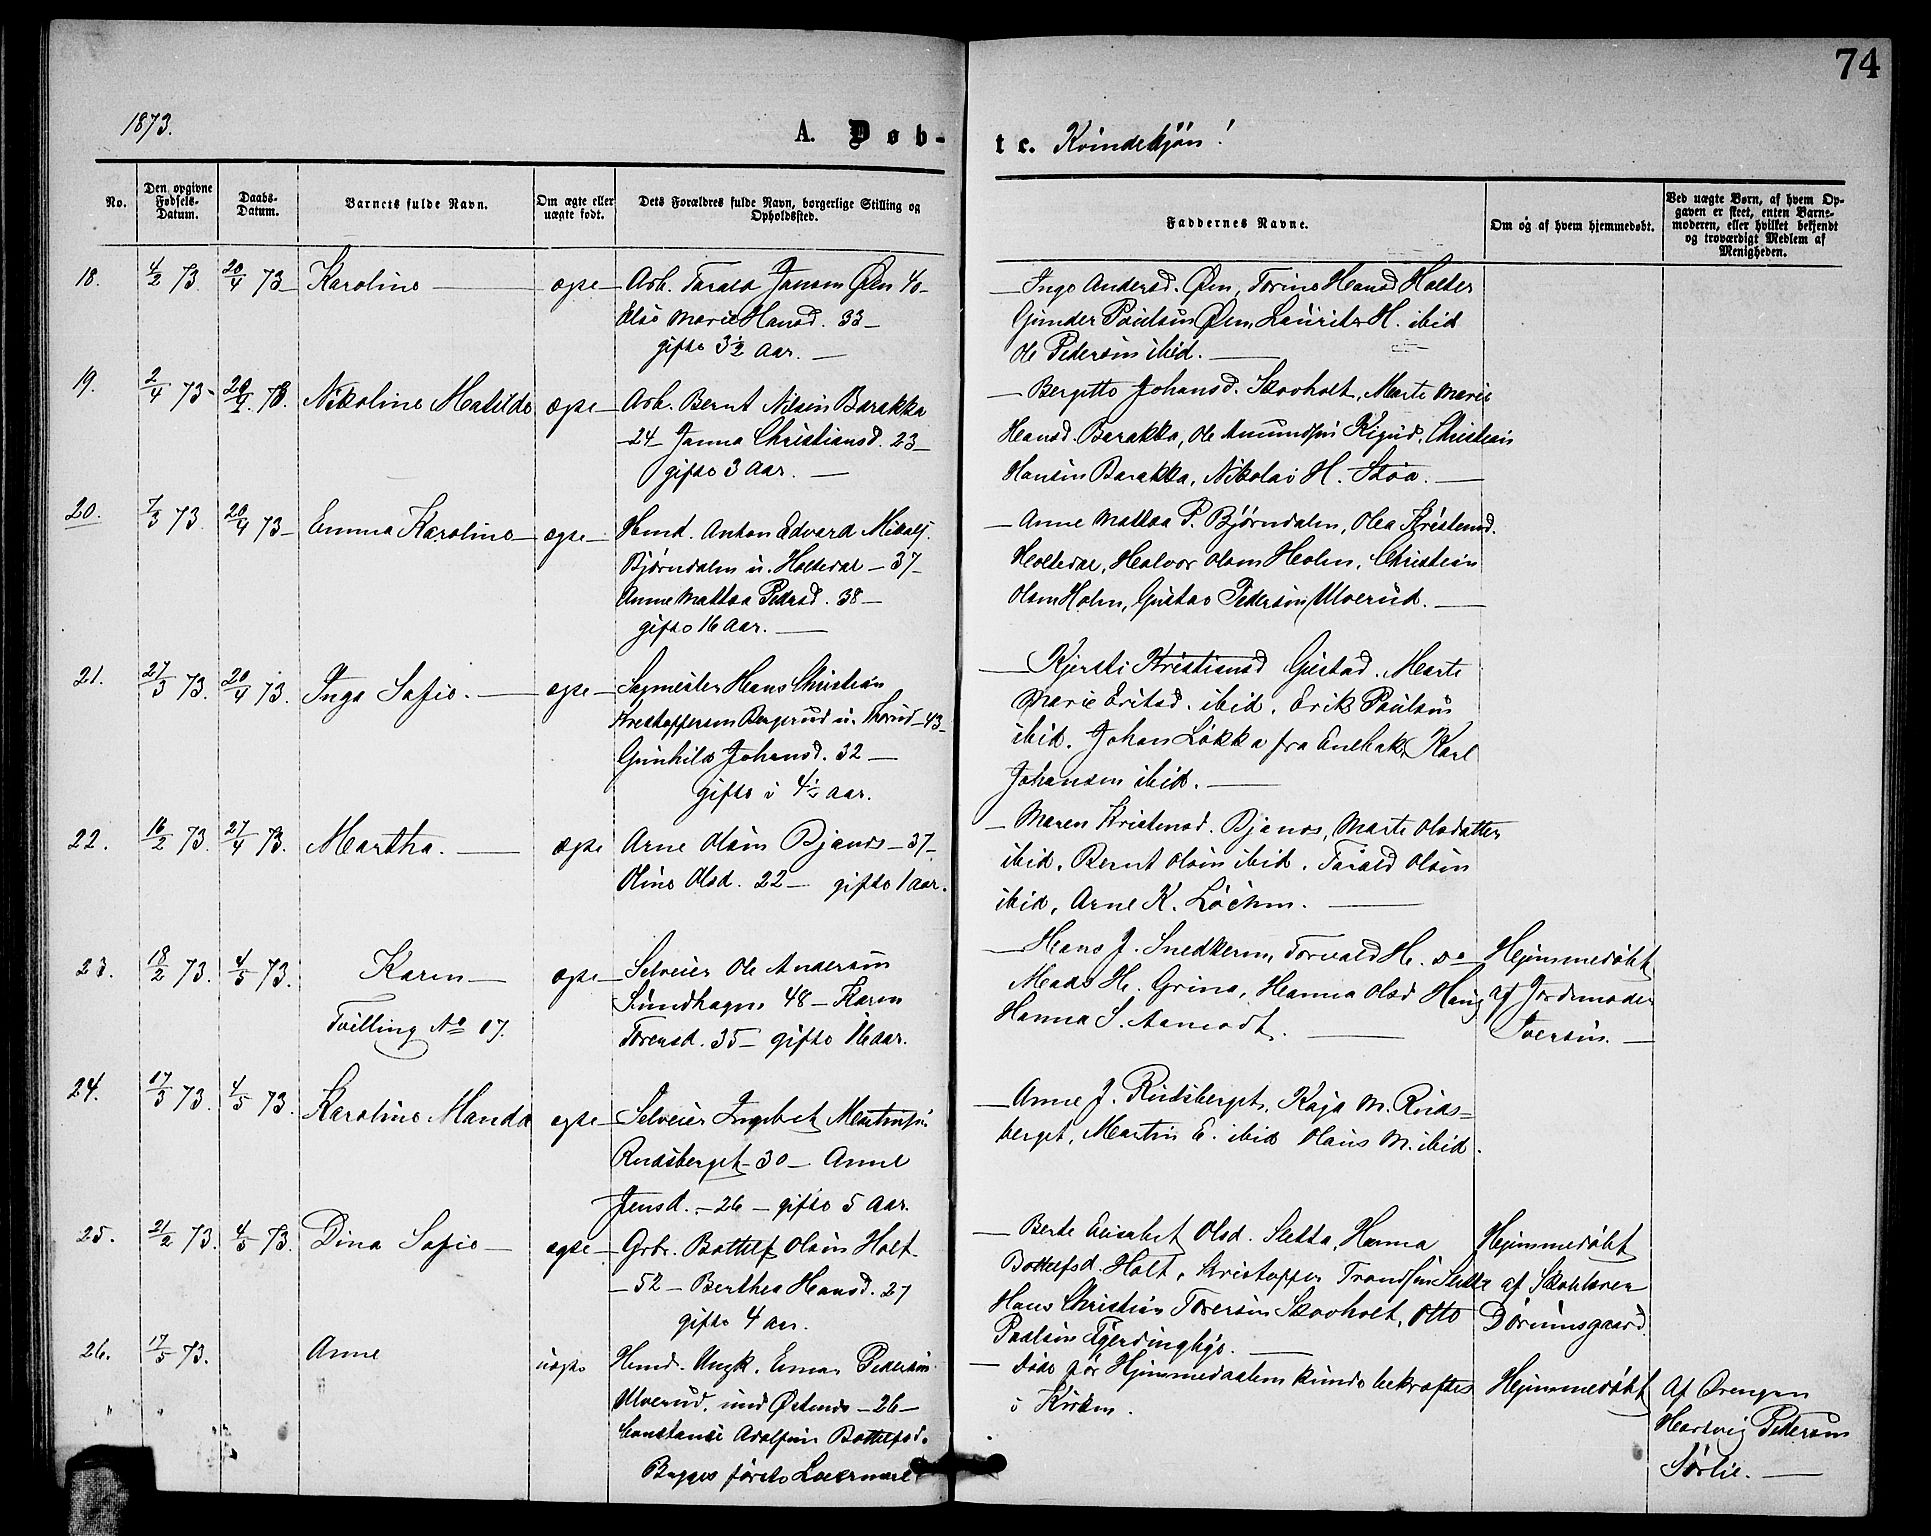 74
1873.
A. Døb-
te. Kvindekjøn!
No.
Den opgivne Fødsels-Datum.
Daabs-Datum.
Barnets fulde Navn.
Om ægte eller uægte født.
Dets Forældres fulde Navn, borgerlige Stilling og Opholdssted.
Faddernes Navne.
Om og af hvem hjemmedøbt.
Ved uægte Børn, af hvem Opgaven er skeet, enten Barnemoderen, eller hvilket bekjendt og troværdigt Medlem af Menigheden.
18. 4/2 73. 20/4 73 Karoline — ægte — Arb. Tarald Jansen Øen 40 —
Else Marie Hansd. 33 —
gifte 3½ Aar. —
— Inge Andersd. Øen, Torine Hansd Holter
Gunder Paulsen Øen Lauritz H. ibid
Ole Pedersen ibid. —
19. 2/4 73 20/4 73. Nikoline Matilde ægte — Arb. Bernt Nilsen Barakka
— 24 — Janna Christiansd. 23 —
gifte 3 Aar. —
— Bergitte Johansd. Skovholt, Marte Marie
Hansd. Barakka, Ole Amundsen Christian
Hansen Barakka, Nikolai H. Støa. —
20. 7/3 73. 20/4 73 — Emma Karoline — ægte — Hmd. Anton Edvard Mikalj.
Bjørndalen u. Holtedal — 37 —
Anne Mattea Pedersd. 38 —
gifte 16 Aar. —
— Anne Mattea P. Bjørndalen, Olea Kristensd.
Holtedal, Halvor Olsen Holm, Christian
Olsen Holm, Gustav Pedersen Ulverud. —
21. 27/3 73. 20/4 73. Inga Sofie. — ægte — Sagmester Hans Christian
Kristoffersen Bergerud u. — 43 —
Gunhild Johansd. 32 —
gifte i 4½ Aar.
— Kjersti Kristiansd Gustad. Marte
Marie Eriksd. ibid. Erik Paulsen
ibid. Johan Løkka fra Enebak, Karl
Johansen ibid. —
22. 16/2 73. 27/4 73. Martha. — ægte Arne Olsen Bjanes — 37 —
Oline Olsd. 22 — gifte 1 Aar.
— Maren Kristensd. Bjanes, Marte Olsdatter
ibid, Bernt Olsen ibid. Tarald Olsen
ibid, Arne K. —
23. 18/2 73. 4/5 73. Karen —
Tvilling No 17.
ægte — Selveier Ole Andersen
Sundhagen 48 — Karen
Torensd. 35 — gifte 16 Aar.
— Hans J. Snedkeren, Torvald H. do
Mads H. Grina, Hanna Olsd Haug
Hanna S. Aamodt. —
Hjemmedøbt
af Jordmoder
Iversen. —
24. 17/3 73. 4/5 73. Karoline Manda ægte — Selveier Ingebret Martinsen
Rudsberget — 30 — Anne
Jensd. — 26 — gifte 5 Aar.
— Anne J. Rudsberget, Kaja M. Ruds-
berget, Martin E. ibid Olaus M. ibid.
25. 21/2 73. 4/5 73. Dina Sofie — ægte — Grbr. Bottelf Olsen Holt
— 52 — Berthea Hansd. 27
gifte 4 Aar.
— Berte Elisabet Olsd. Sletta, Hanna
Bottelfsd. Holt, Kristoffer Trondsen Sletta
Hans Christian Toresen Skovholt, Otto
Paulsen Fjerdingbye. —
Hjemmedøbt
af Skolelærer
Dørumsgaard
26. 17/5 73. Anne uægte Hmd. Ungk. Einar Pedersen
Ulverud, — 26 —
Constanse Adolfine Bottelfsd.
Begges første Leiermaal
— døde før Hjemmedaaben kunde bekræftes
i Kirken.
Hjemmedøbt
Af Drengen
Hartvig Pedersen
Sørlie. —